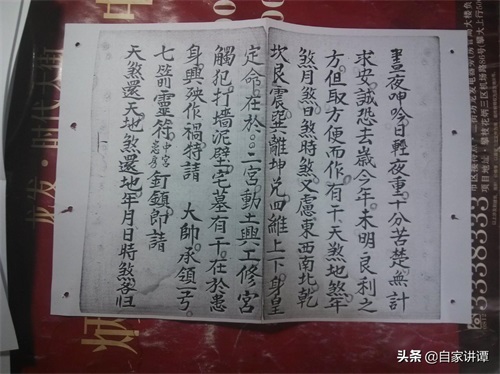 晝夜呻吟日輕夜重十分苦楚無計
求安誠恐去歲今年未明良利之
方但取方便而作有干天煞地煞年
煞月煞日煞時煞又慮東西南北乾
坎艮震巽離坤兌四維上下身皇
定命在於二宮動土興工修宮
觸犯打墻泥壁宅墓有干在於患
身興殃作禍特請 大帥承領一
七箭靈符中宮釘鎮附請
天煞還天地煞還地年月日時煞各归
龙发·时代天街
炳
中
3338333
项目地址:攀枝花炳三区机场路86号
头条 @自家讲谭